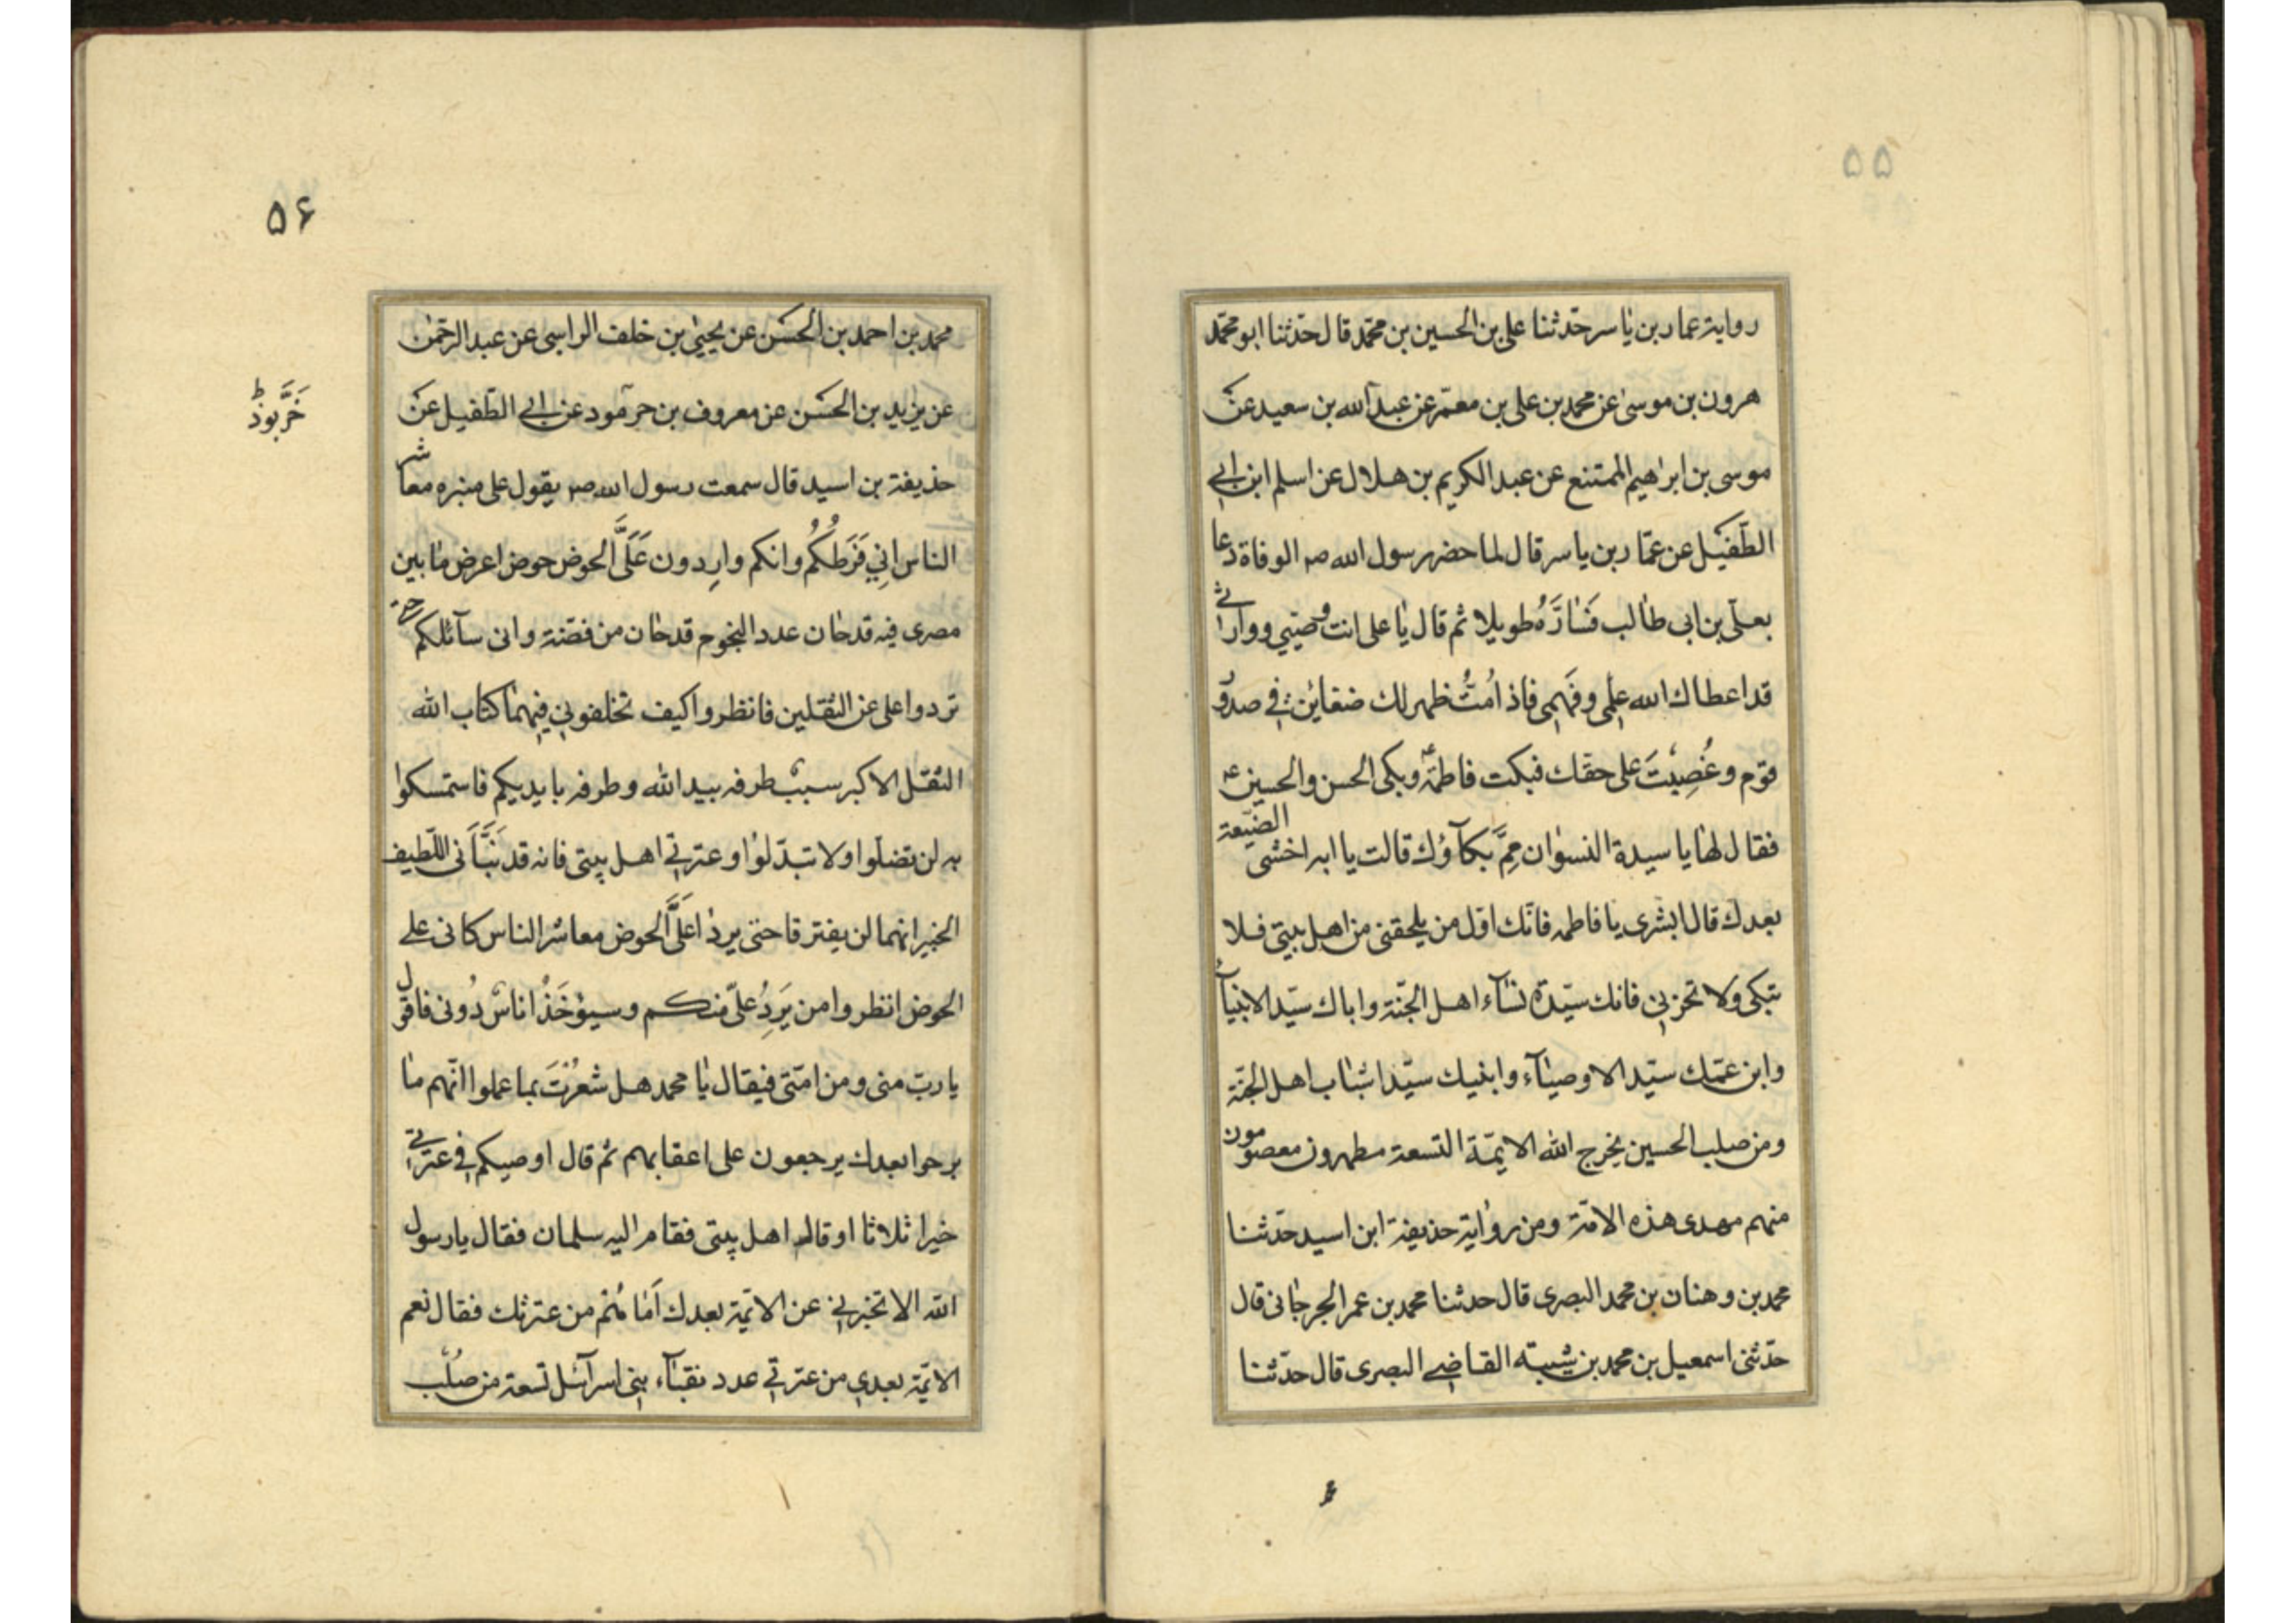 ۵۵
رواية عمار بن ياسر حدّثنا على بن الحسين بن محمّد قال حدّثنا ابو محمّد
هرون بن موسى عن محمد بن على بن معتمر عن عبد الله بن سعيد عن
موسى بن ابراهيم الممتنع عن عبد الكريم بن هلال عن اسلم ابن ابي
الطّفيل عن عمّار بن ياسر قال لما حضر رسول الله صم الوفاة دعا
بعلّي بن ابى طالب فَسَارَّهُ طويلا ثم قال يا على انت وصيّي ووارثي
قد اعطاك الله عِلمي وفَهمي فاذا مُتُّ ظهر لك ضغاين في صدور
قوم وغُصِبْتَ على حقّك فبكت فاطمة ع وبكى الحسن والحسين ع
فقال لها يا سيدة النسوان مِمَّ بكآؤك قالت يا ابه اخشى الضّيعة
بعدك قال ابشرى يا فاطمه فانّك اوّل من يلحقنى من اهل بيتى فلا
تبكى ولا تحزني فانك سيّدة نسآء اهل الجّنة واباك سيّد الانبيآء
وابن عمّك سيّد الاوصيآء وابنيك سيّدا شباب اهل الجنّة
ومن صلب الحسين يخرج الله الايمّة التسعة مطهرون معصومون
منهم مهدى هذه الامّة ومن رواية حذيفة ابن اسيد حدّثنا
محمد بن وهنان بن محمد البصرى قال حدثنا محمد بن عمر الجرجانى قال
حدّثنى اسمعيل بن محمد بن شيبة القاضي البصرى قال حدّثنا
۵۶
محمد بن احمد بن الحسَن عن يحيىٰ بن خلف الراسبى عن عبد الرحمٰن
عن يزيد بن الحسَن عن معروف بن خرّمود عن ابي الطّفيل عن
خَرَّبوذ ط
حذيفة بن اسيد قال سمعت رسول الله صم يقول على منبره معاشر
الناس انِي فَرَطُكُمُ وانكم وارِدون عَلَىَّ الحوض حوض اعرض ما بين
مصرى فيه قدحان عدد النجوم قدحان من فضّة وانى سآئلكم حين
تردوا على عن الثقلين فانظروا كيف تخلفوني فِيهما كتاب الله
الثقل الاكبر سببٌ طرفه بيد الله وطرفه بايديكم فاستمسكوا
به لن تضلّوا ولا تبدّلوا وعترتي اهل بيتى فانه قد نَبَّأَنى اللّطيف
الخبير انهما لن يفترقا حتى يردا عَلَىَّ الحوض معاشر الناس كانى علے
الحوض انظروا من يَرِدُ علىّ منكم وسيُؤخَذُ اناسٌ دُونى فاقول
يا ربّ منى ومن امّتى فيقال يا محمد هل شعُرْتَ بما عملوا انّهم ما
برحوا بعدك يرجعون على اعقابهم ثم قال اوصيكم في عترتي
خيرا ثلاثا او قالہ اهل بيتى فقام اليه سلمان فقال يا رسول
الله الا تخبرني عن الائمّة بعدك اَمَا هُم من عترتك فقال نعم
الائمّة بعدي من عترتي عدد نقبآء بني اسرآئل تسعة من صُلب